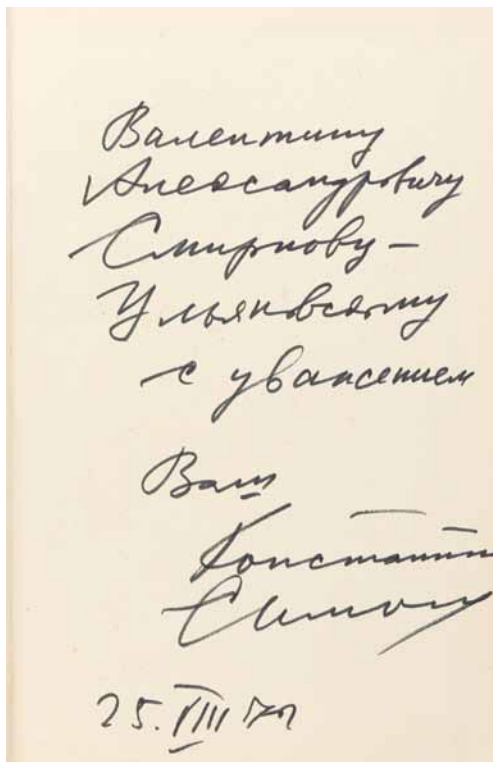 Валентину
Александровичу
Смирнову-
Ульяновскому
с уважением
Ваш
Константин
Симонов
25.VIII 72